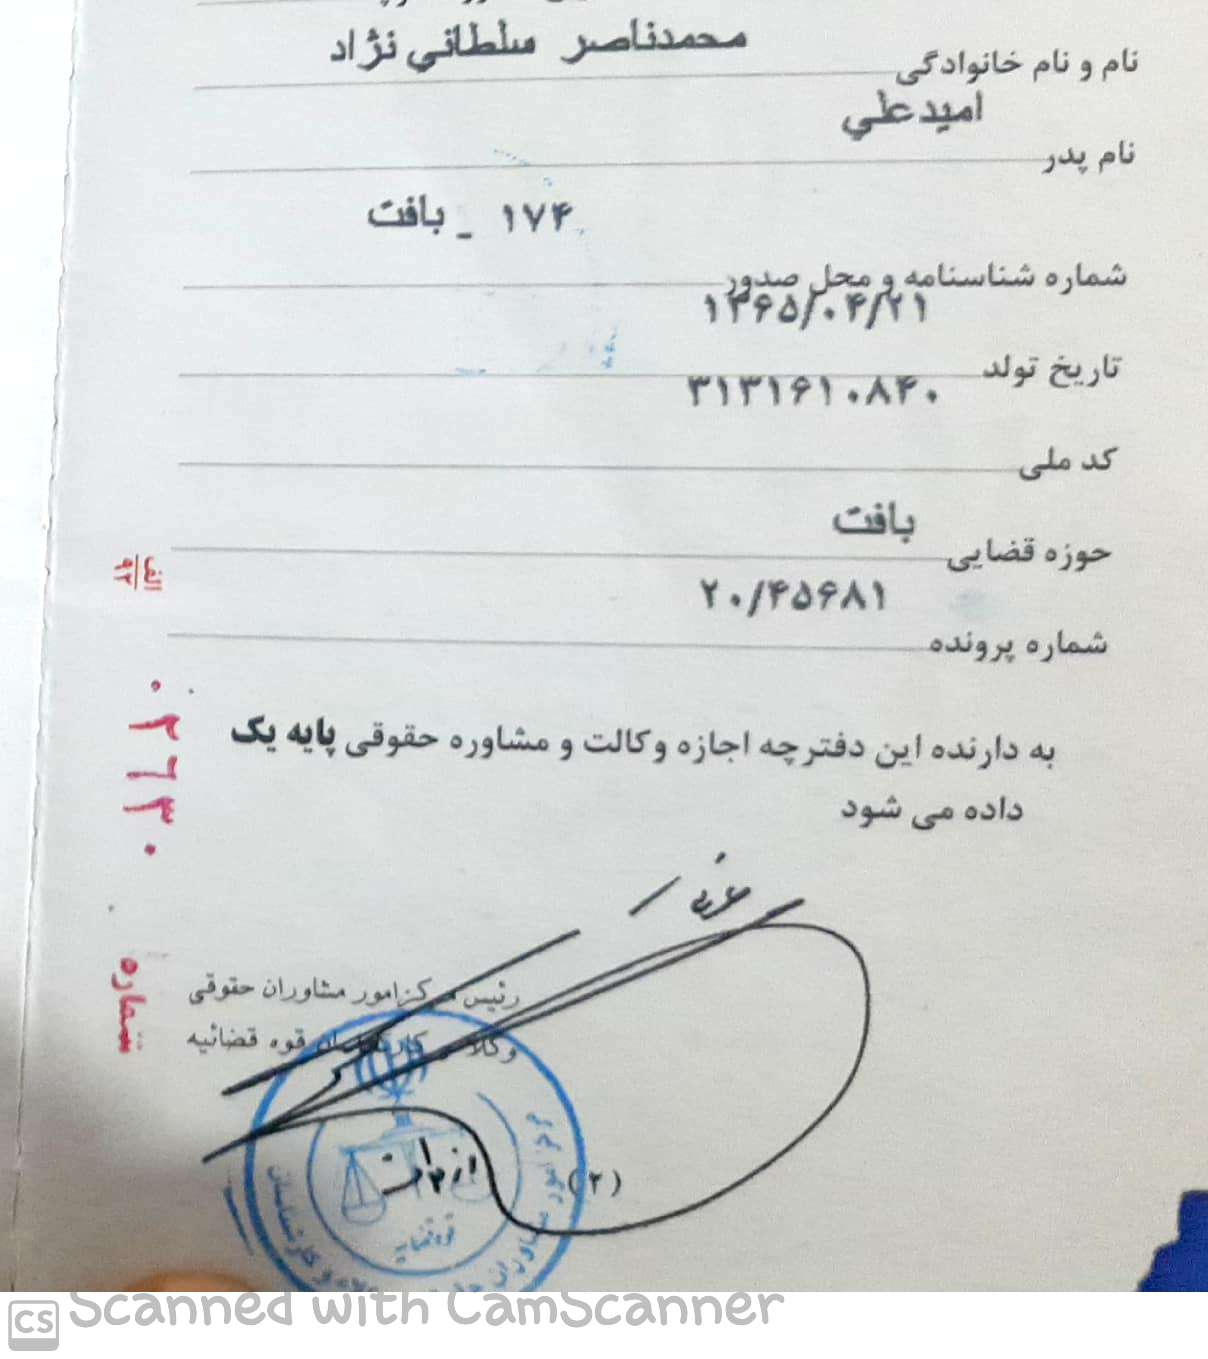 نام و نام خانوادگی محمدناصر سلطاني نژاد
نام پدر اميدعلي
شماره شناسنامه و محل صدور ۱۷۴ _ بافت
تاریخ تولد ۱۳۶۵/۰۴/۲۱
کد ملی ۳۱۳۱۶۱۰۸۴۰
حوزه قضایی بافت
شماره پرونده ۲۰/۴۵۶۸۱
به دارنده این دفترچه اجازه وکالت و مشاوره حقوقی پایه یک
داده می شود
رئیس مرکز امور مشاوران حقوقی
وکلا و کارشناسان قوه قضائیه
(۲)
قوه قضاییه
الف
۹۲
شماره
۰۲۶۳۰
CS Scanned with CamScanner